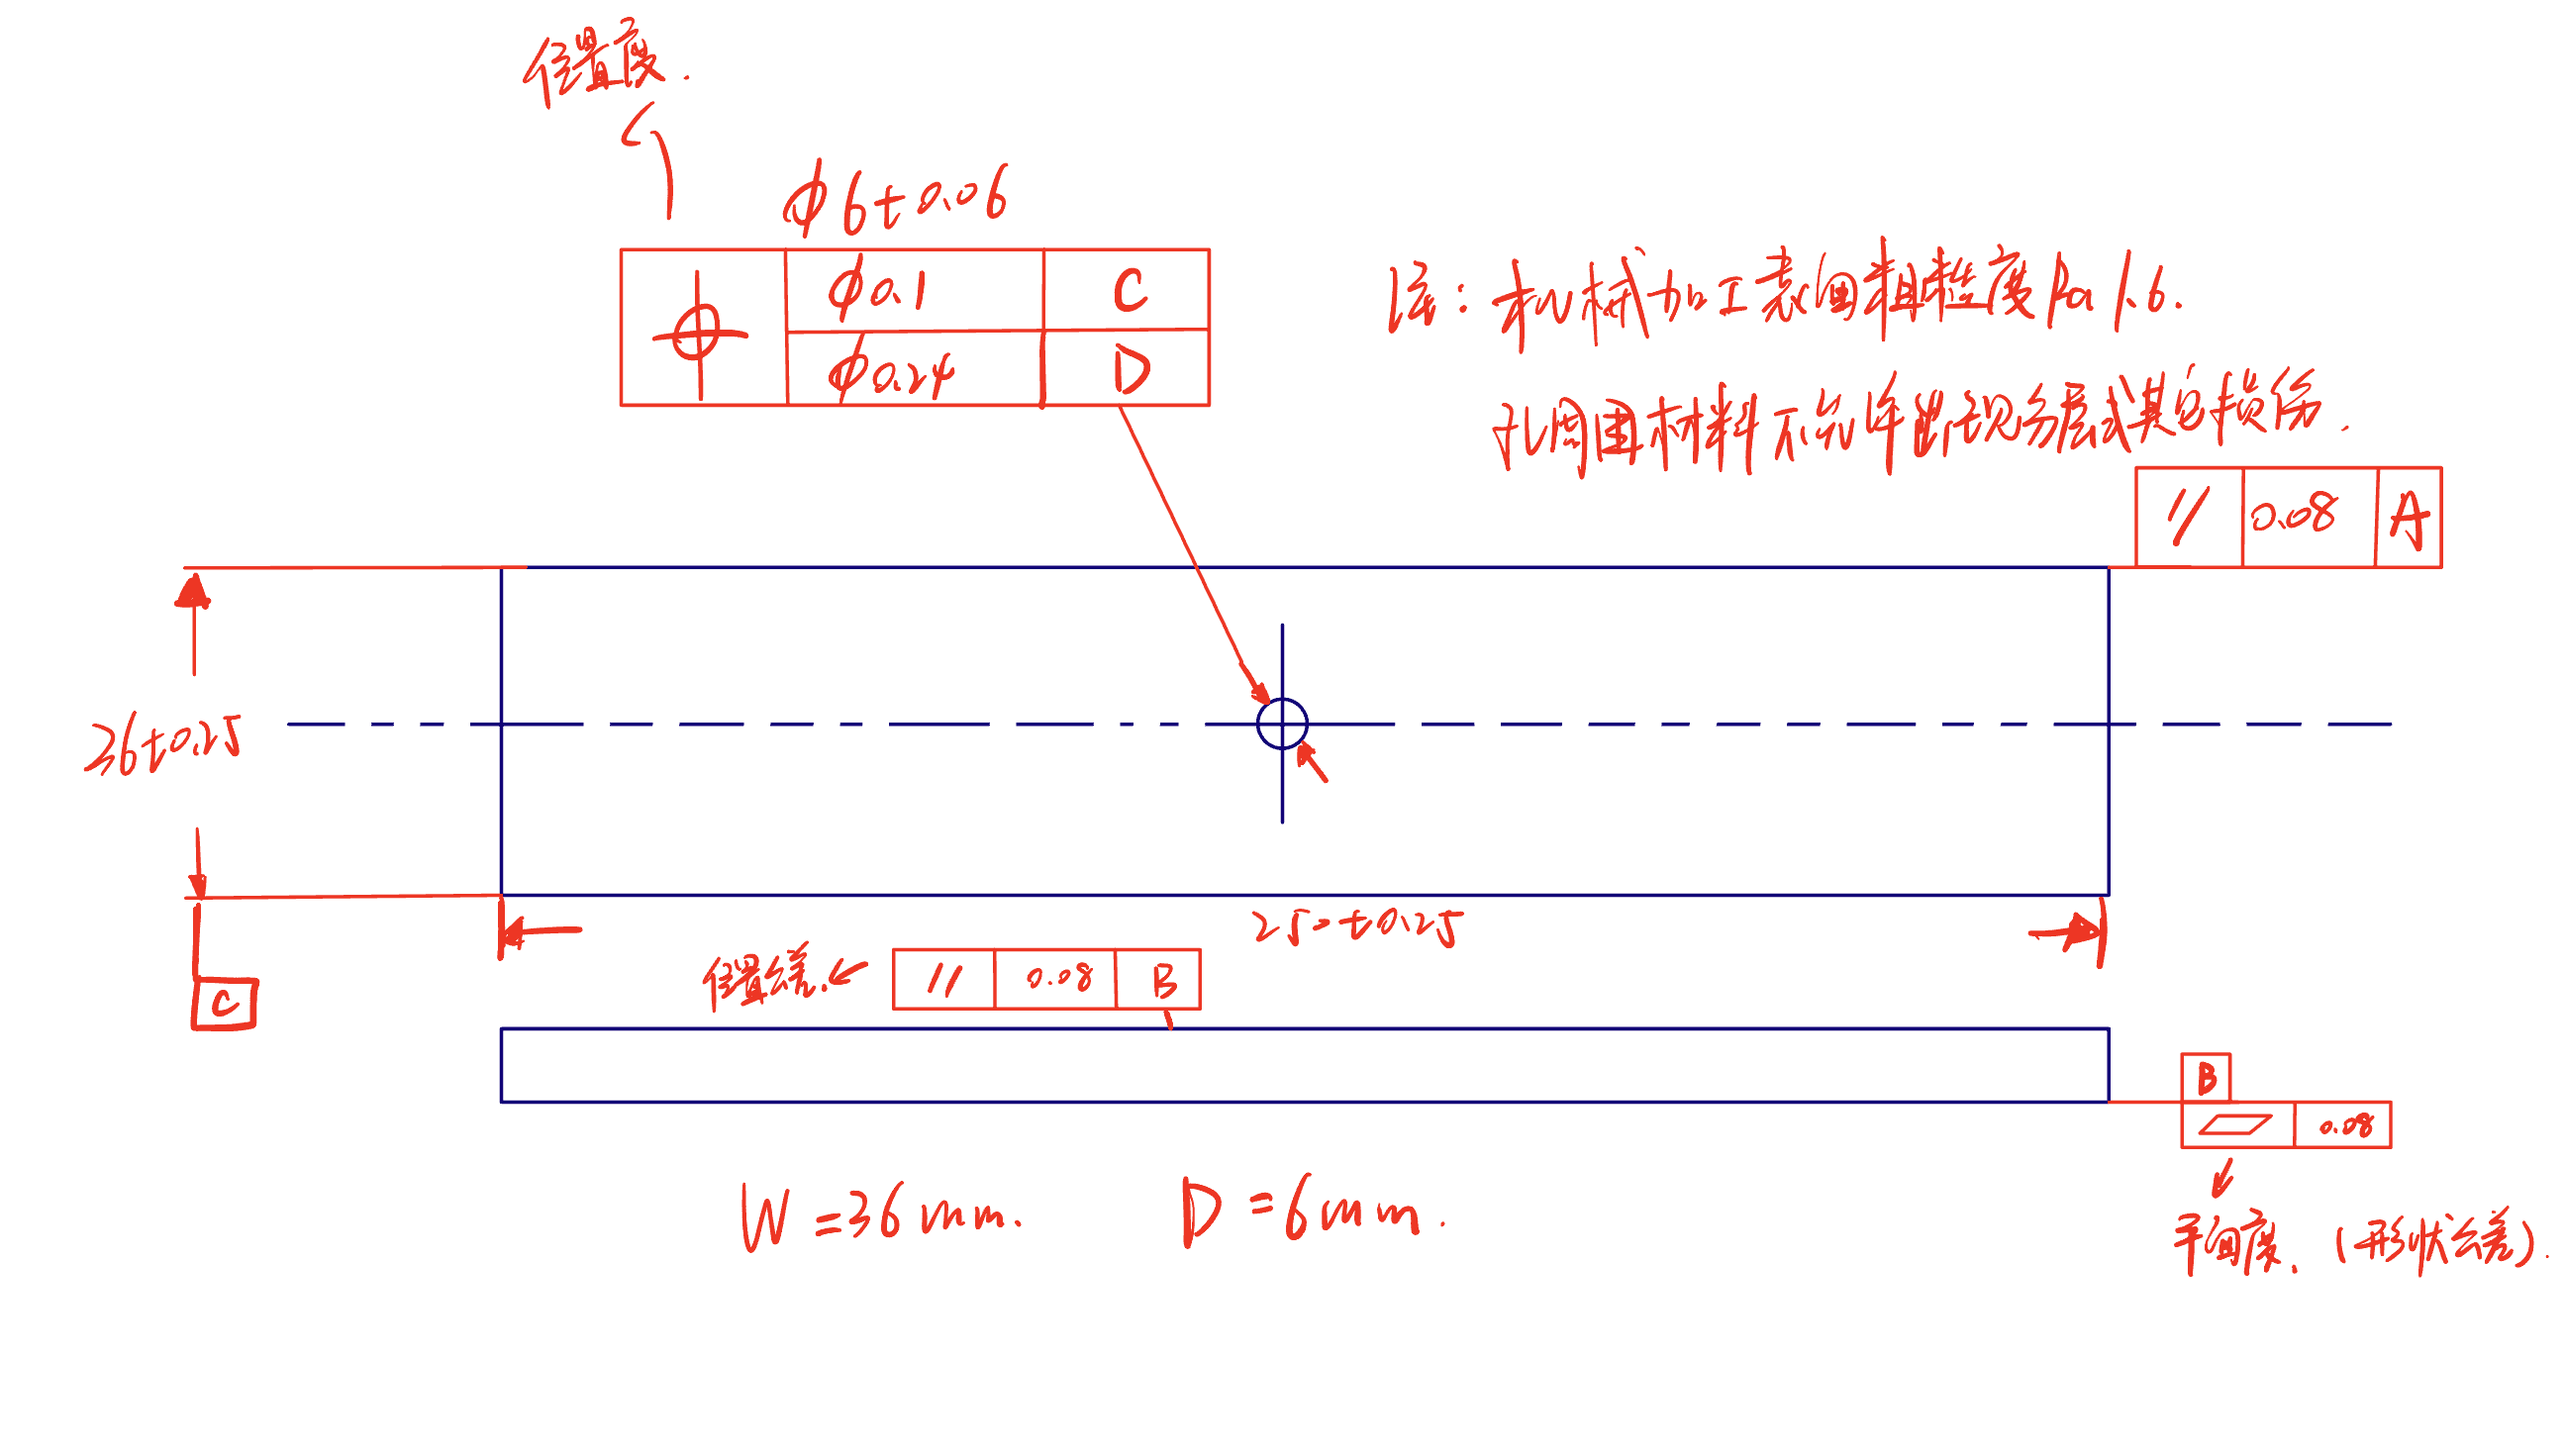 位置度.
φ6±0.06
φ0.1 C
φ0.24 D
注: 机械加工表面粗糙度Ra 1.6.
孔周围材料不允许出现分层或其它损伤.
// 0.08 A
36±0.25
250±0.25
C
位置公差. // 0.08 B
B
0.08
W=36mm. D=6mm.
平面度. (形状公差).